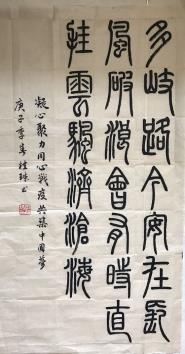 多岐路今安在長
風破浪會有時直
挂雲帆濟滄海
凝心聚力同心戰疫共築中國夢
庚子季春桂珠书